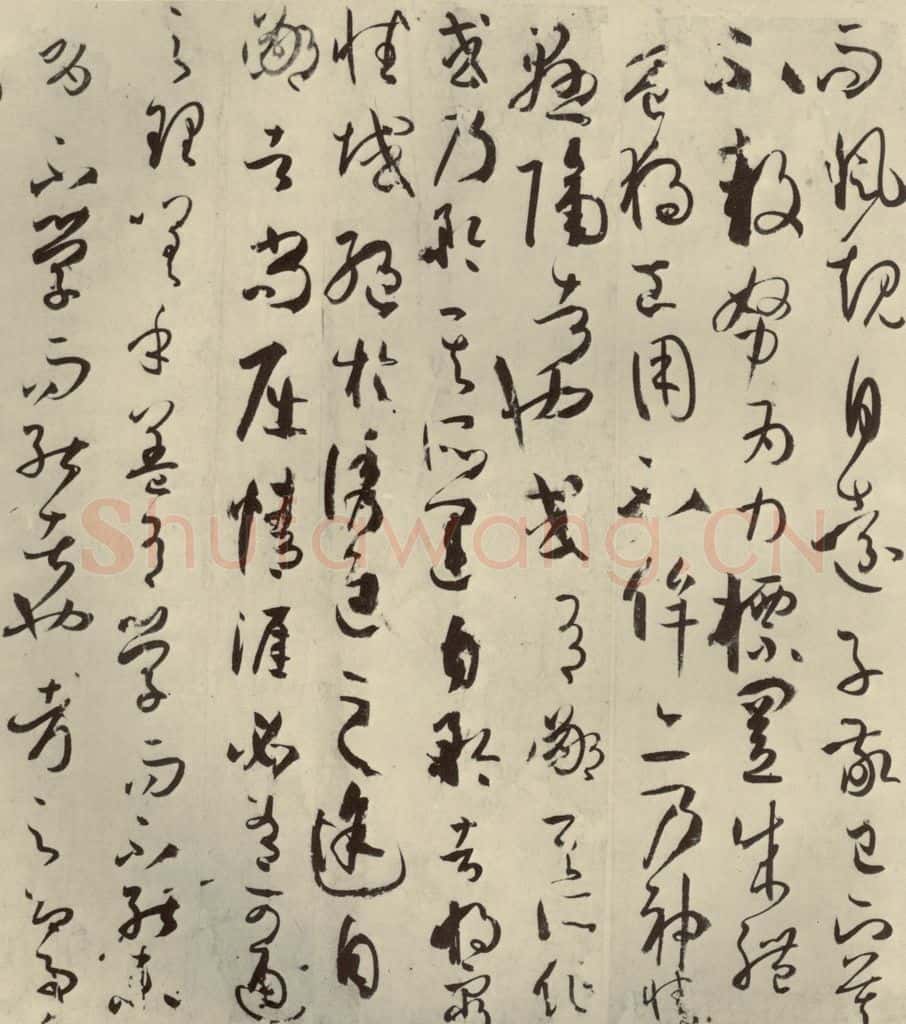 而風規自遠子敬已下莫
不鼓努為力標置成體
豈獨工用不侔亦乃神情
懸隔者也或有鄙其所作
或乃矜其所運自矜者將窮
性域絕於誘進之途自
鄙者尚屈情涯必有可通
之理嗟乎蓋有學而不能未
有不學而能者也考之即事
Shufawang.CN